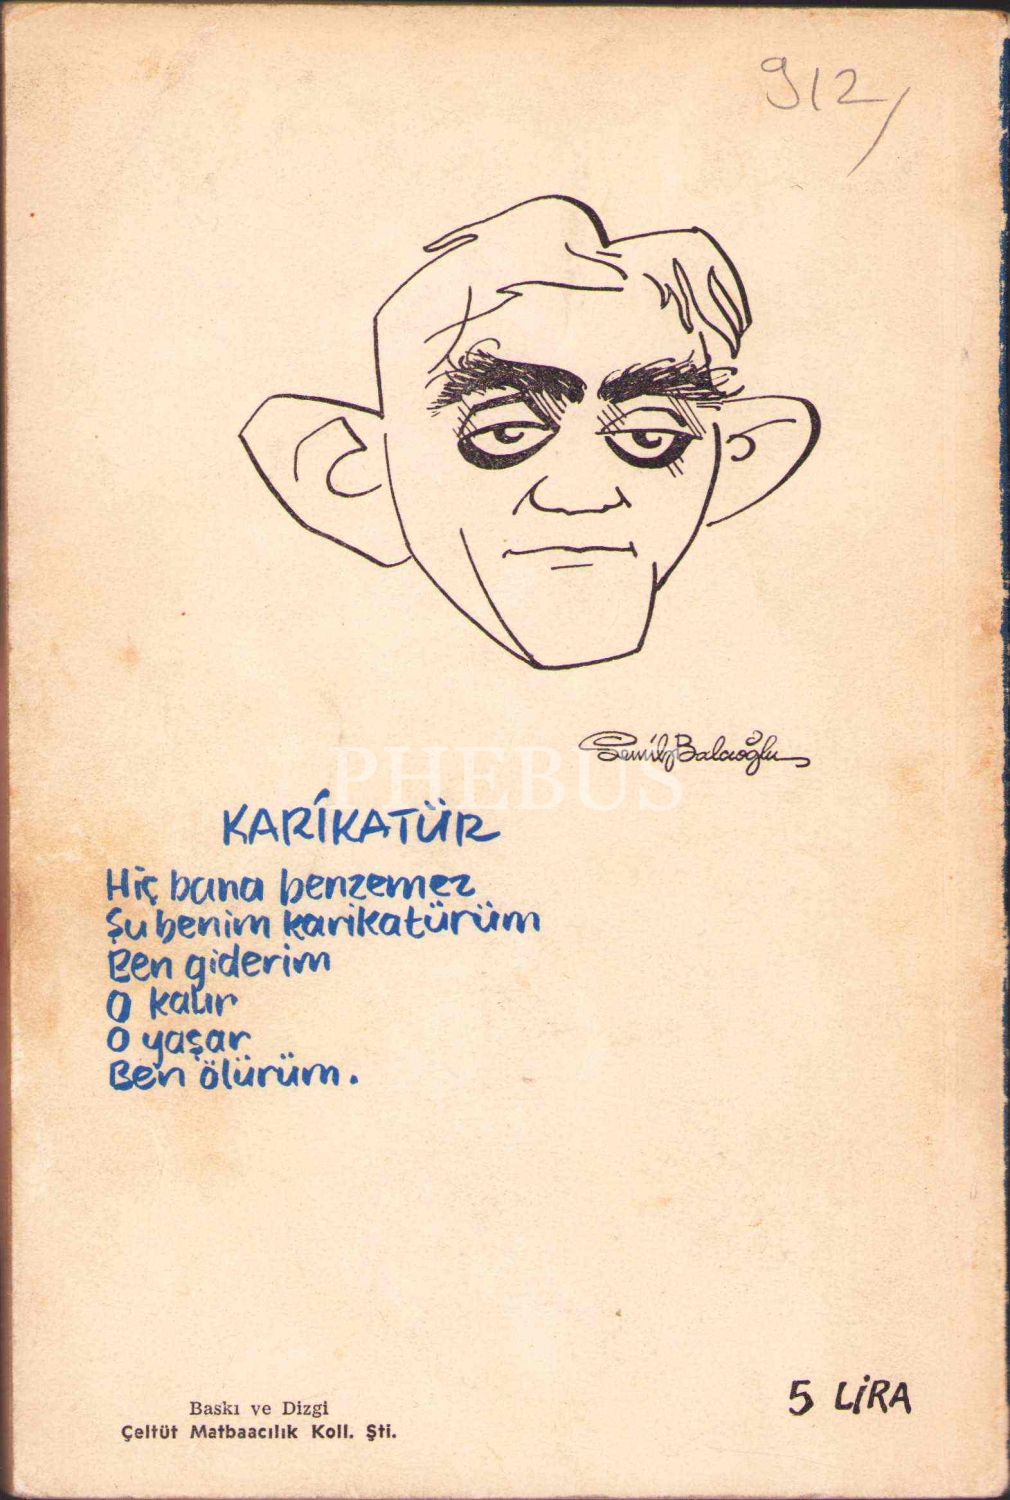 912
Semih Balcıoğlu
PHEBUS
KARİKATÜR
Hiç bana benzemez
Şu benim karikatürüm
Ben giderim
O kalır
O yaşar
Ben ölürüm.
5 LİRA
Baskı ve Dizgi
Çeltüt Matbaacılık Koll. Şti.